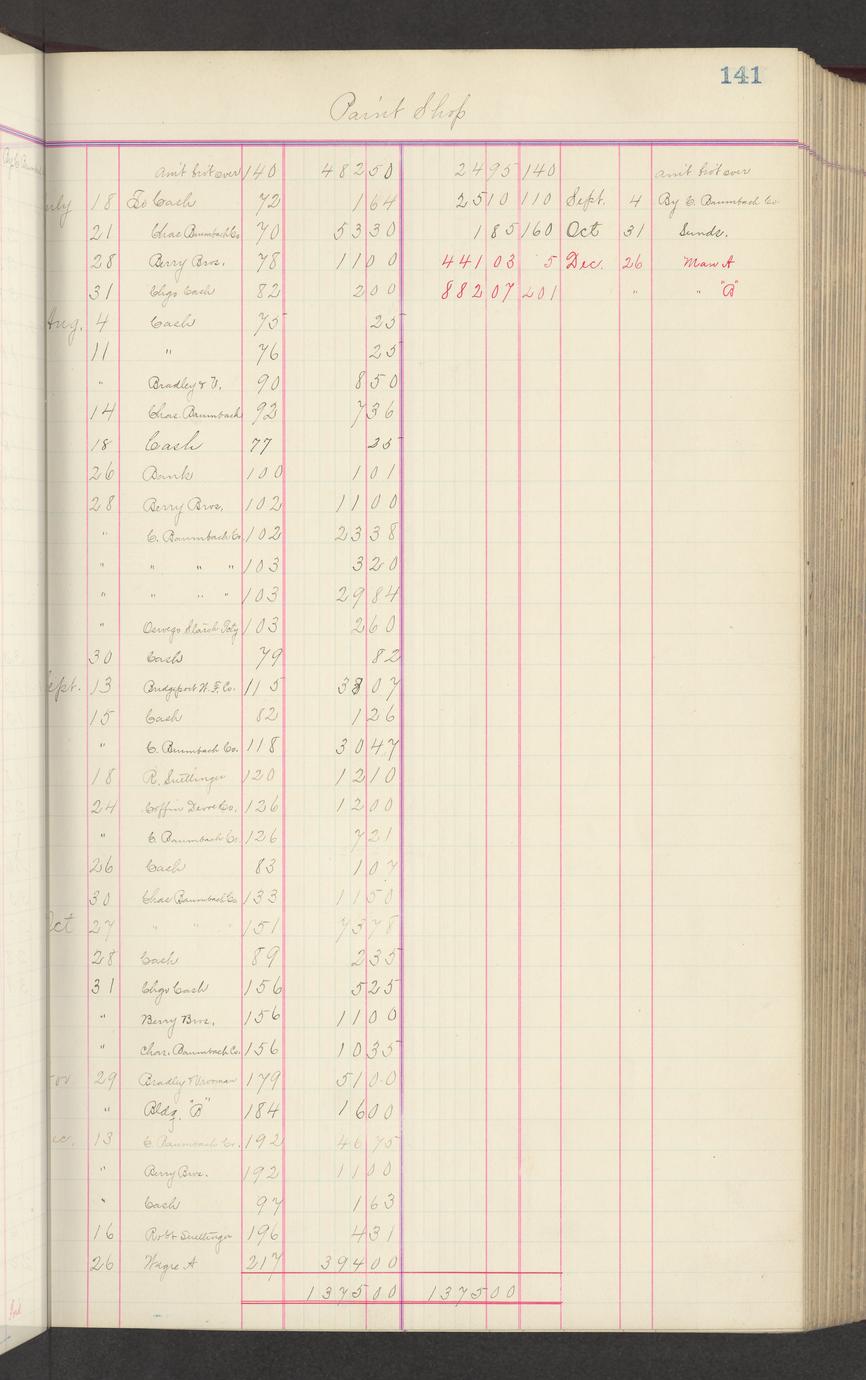 141
Paint Shop
Am't bro't over 140 482 50 24 95 140 am't bro't over
uly 18 To Cash 72 1 64 25 10 110 Sept. 4 By C. Baumbach Co
21 Chas Baumbach Co 70 53 30 1 85 160 Oct 31 Sunds.
28 Berry Bros. 78 11 00 441 03 5 Dec. 26 Man A
31 Chgs Cash 82 2 00 882 07 201 " " "B"
Aug. 4 Cash 75 25
11 " 76 25
" Bradley & V. 90 8 50
14 Chas. Baumbach 92 7 36
18 Cash 77 25
26 Bank 100 1 01
28 Berry Bros. 102 11 00
" C. Baumbach Co. 102 23 38
" " " " 103 3 20
" " " " 103 29 84
" Oswego Starch Fcty 103 2 60
30 Cash 79 82
ept. 13 Bridgeport W. F. Co. 115 38 07
15 Cash 82 1 26
" C. Baumbach Co. 118 30 47
18 R. Suettinger 120 12 10
24 Coffin Devoe Co. 126 12 00
" C. Baumbach Co. 126 7 21
26 Cash 83 1 07
30 Chas Baumbach Co 133 11 50
Oct 27 " " " 151 73 78
28 Cash 89 2 35
31 Chgs Cash 156 5 25
" Berry Bros. 156 11 00
" Chas. Baumbach Co. 156 10 35
ov 29 Bradley & Vrooman 179 51 00
" Bldg. "B" 184 16 00
ec. 13 C Baumbach Co. 192 46 75
" Berry Bros. 192 11 00
" Cash 97 1 63
16 Rob't Suettinger 196 4 31
26 Wages A 217 394 00
1375 00 1375 00